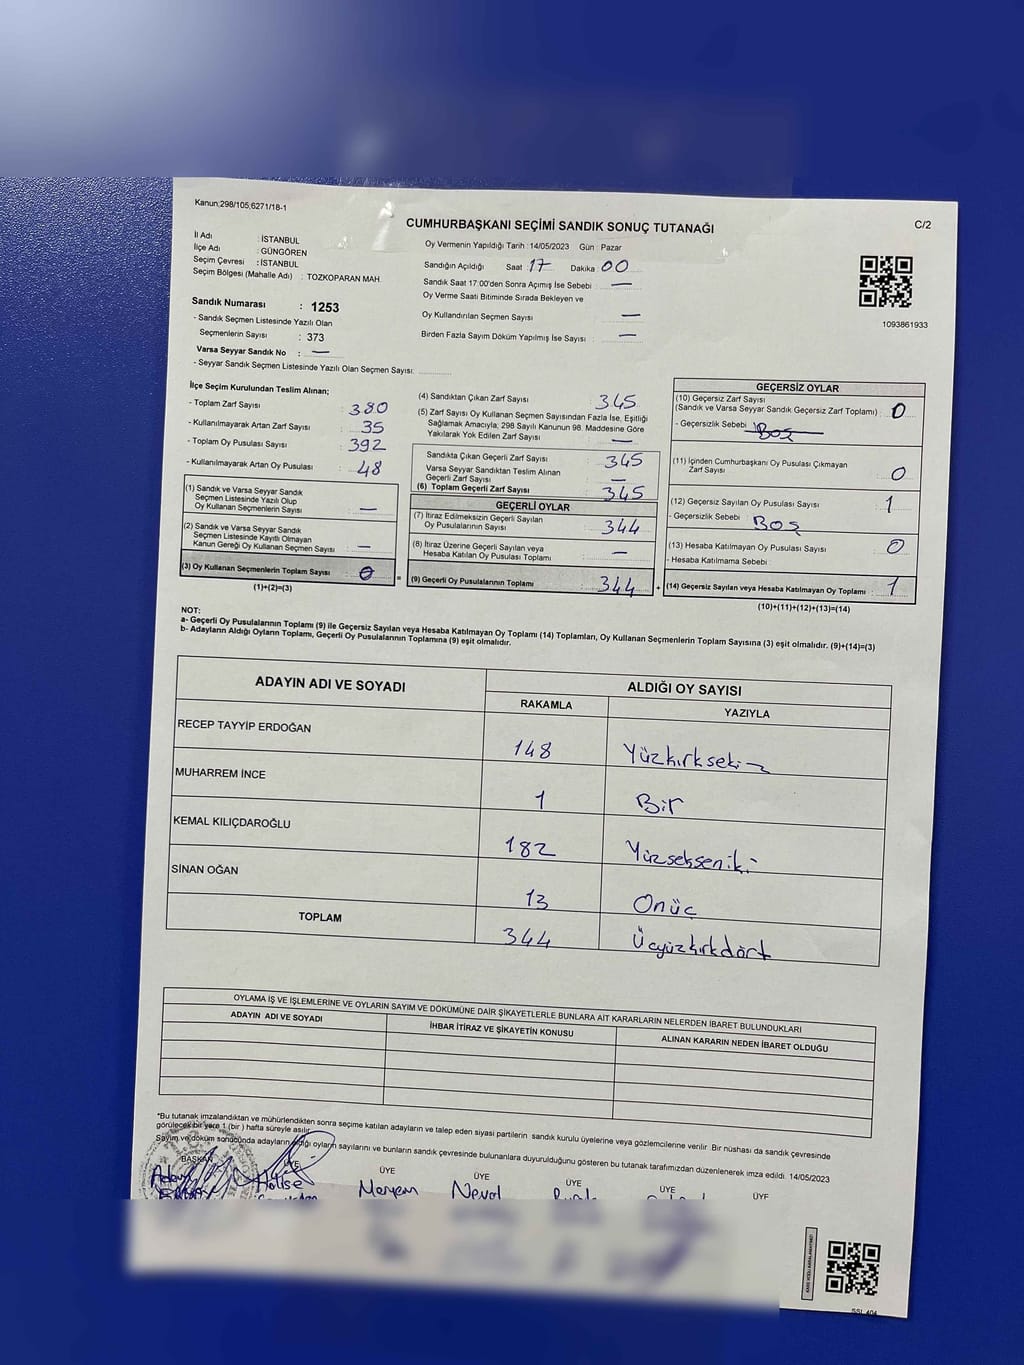 Kanun:298/105,6271/18-1
CUMHURBAŞKANI SEÇİMİ SANDIK SONUÇ TUTANAĞI
C/2
İl Adı : İSTANBUL
İlçe Adı : GÜNGÖREN
Seçim Çevresi : İSTANBUL
Seçim Bölgesi (Mahalle Adı) : TOZKOPARAN MAH.
Sandık Numarası : 1253
- Sandık Seçmen Listesinde Yazılı Olan
Seçmenlerin Sayısı : 373
Varsa Seyyar Sandık No : —
- Seyyar Sandık Seçmen Listesinde Yazılı Olan Seçmen Sayısı:
Oy Vermenin Yapıldığı Tarih : 14/05/2023 Gün : Pazar
Sandığın Açıldığı Saat : 17 Dakika : 00
Sandık Saat 17:00'den Sonra Açımış İse Sebebi : —
Oy Verme Saati Bitiminde Sırada Bekleyen ve
Oy Kullandırılan Seçmen Sayısı : —
Birden Fazla Sayım Döküm Yapılmış İse Sayısı : —
1093861933
İlçe Seçim Kurulundan Teslim Alınan;
- Toplam Zarf Sayısı : 380
- Kullanılmayarak Artan Zarf Sayısı : 35
- Toplam Oy Pusulası Sayısı : 392
- Kullanılmayarak Artan Oy Pusulası : 48
(1) Sandık ve Varsa Seyyar Sandık
Seçmen Listesinde Yazılı Olup
Oy Kullanan Seçmenlerin Sayısı : —
(2) Sandık ve Varsa Seyyar Sandık
Seçmen Listesinde Kayıtlı Olmayan
Kanun Gereği Oy Kullanan Seçmen Sayısı : —
(3) Oy Kullanan Seçmenlerin Toplam Sayısı : 0
(1)+(2)=(3)
(4) Sandıktan Çıkan Zarf Sayısı : 345
(5) Zarf Sayısı Oy Kullanan Seçmen Sayısından Fazla İse, Eşitliği
Sağlamak Amacıyla; 298 Sayılı Kanunun 98. Maddesine Göre
Yakılarak Yok Edilen Zarf Sayısı : —
Sandıkta Çıkan Geçerli Zarf Sayısı : 345
Varsa Seyyar Sandıktan Teslim Alınan
Geçerli Zarf Sayısı : —
(6) Toplam Geçerli Zarf Sayısı : 345
GEÇERLİ OYLAR
(7) İtiraz Edilmeksizin Geçerli Sayılan
Oy Pusulalarının Sayısı : 344
(8) İtiraz Üzerine Geçerli Sayılan veya
Hesaba Katılan Oy Pusulası Toplamı : —
= (9) Geçerli Oy Pusulalarının Toplamı : 344
GEÇERSİZ OYLAR
(10) Geçersiz Zarf Sayısı
(Sandık ve Varsa Seyyar Sandık Geçersiz Zarf Toplamı) : 0
- Geçersizlik Sebebi : BOŞ
(11) İçinden Cumhurbaşkanı Oy Pusulası Çıkmayan
Zarf Sayısı : 0
(12) Geçersiz Sayılan Oy Pusulası Sayısı : 1
- Geçersizlik Sebebi : BOŞ
(13) Hesaba Katılmayan Oy Pusulası Sayısı : 0
- Hesaba Katılmama Sebebi :
+ (14) Geçersiz Sayılan veya Hesaba Katılmayan Oy Toplamı : 1
(10)+(11)+(12)+(13)=(14)
NOT:
a- Geçerli Oy Pusulalarının Toplamı (9) ile Geçersiz Sayılan veya Hesaba Katılmayan Oy Toplamı (14) Toplamları, Oy Kullanan Seçmenlerin Toplam Sayısına (3) eşit olmalıdır. (9)+(14)=(3)
b- Adayların Aldığı Oyların Toplamı, Geçerli Oy Pusulalarının Toplamına (9) eşit olmalıdır.
ADAYIN ADI VE SOYADI
ALDIĞI OY SAYISI
RAKAMLA YAZIYLA
RECEP TAYYİP ERDOĞAN 148 Yüzkırksekiz
MUHARREM İNCE 1 Bir
KEMAL KILIÇDAROĞLU 182 Yüzsekseniki
SİNAN OĞAN 13 Onüç
TOPLAM 344 Üçyüzkırkdört
OYLAMA İŞ VE İŞLEMLERİNE VE OYLARIN SAYIM VE DÖKÜMÜNE DAİR ŞİKAYETLERLE BUNLARA AİT KARARLARIN NELERDEN İBARET BULUNDUKLARI
ADAYIN ADI VE SOYADI İHBAR İTİRAZ VE ŞİKAYETİN KONUSU ALINAN KARARIN NEDEN İBARET OLDUĞU
*Bu tutanak imzalandıktan ve mühürlendikten sonra seçime katılan adayların ve talep eden siyasi partilerin sandık kurulu üyelerine veya gözlemcilerine verilir. Bir nüshası da sandık çevresinde
görülecek bir yere 1 (bir ) hafta süreyle asılır.
Sayım ve döküm sonucunda adayların aldığı oyların sayılarını ve bunların sandık çevresinde bulunanlara duyurulduğunu gösteren bu tutanak tarafımızdan düzenlenerek imza edildi. 14/05/2023
BAŞKAN ÜYE ÜYE ÜYE ÜYE ÜYE ÜYE
Hatise Meryem Neval
SSL 404